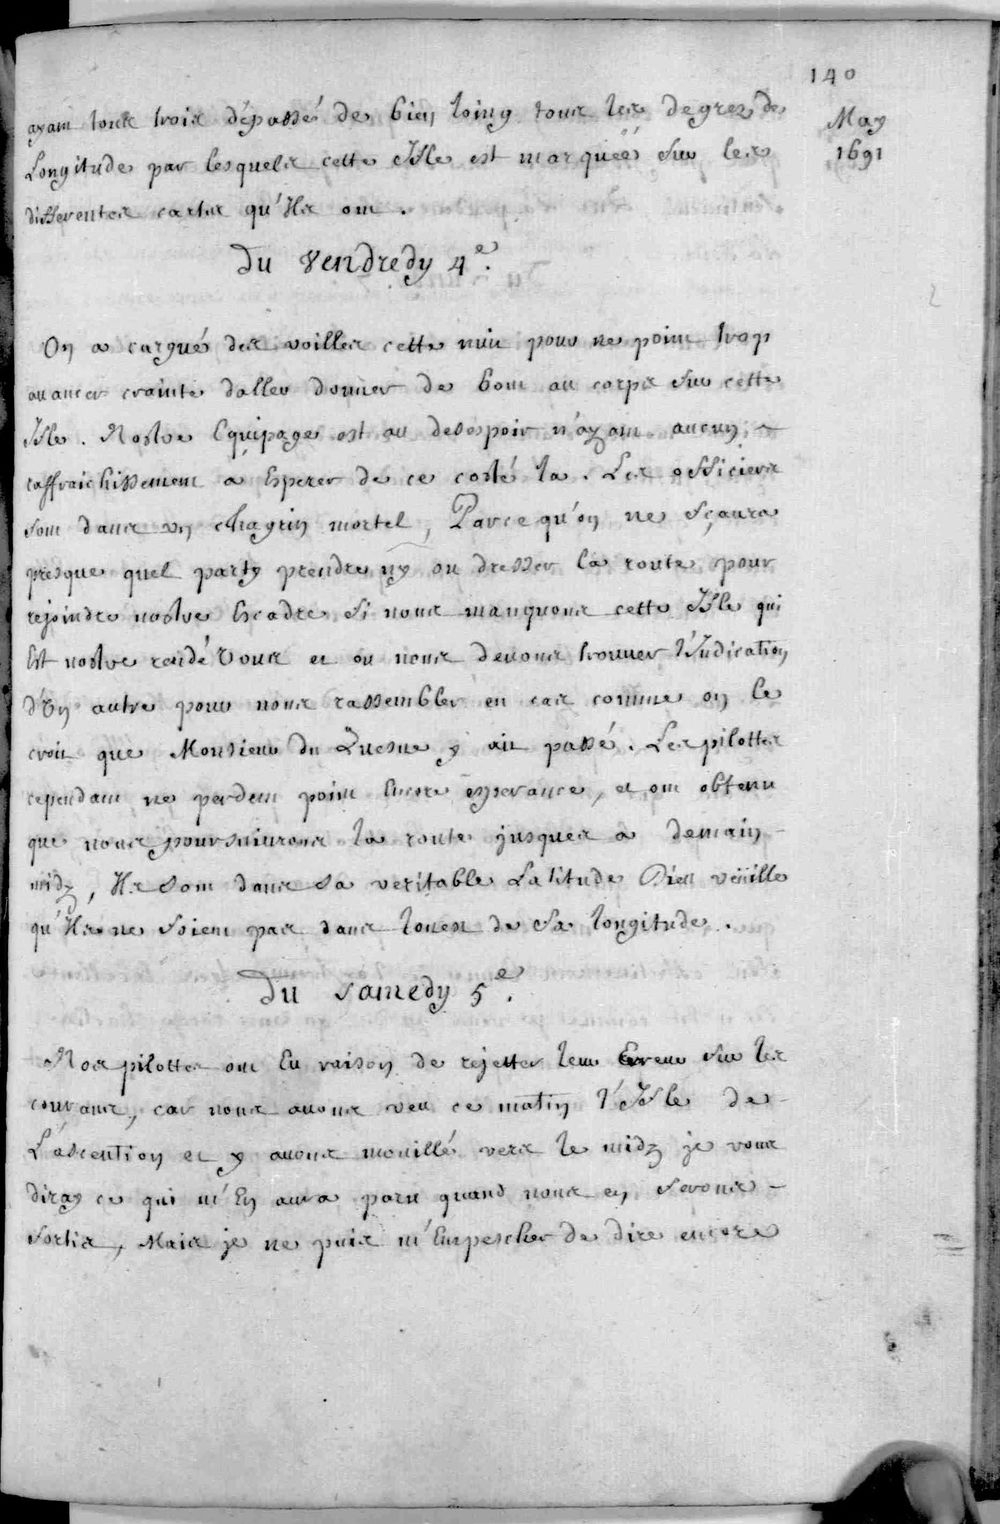 140
May
1691
ayant tous trois dépassé de bien loing tous les degrez de
Longitude par lesquels cette Isle est marquéé sur les
differentes cartes qu'Ils ont .
Du Vendredy 4e.
On a cargué des voilles cette nuit pour ne point trop
auancer crainte daller donner de bout au corps sur cette
Isle . Nostre Equipage est au desespoir n'ayant aucun
raffraichissement a Esperer de ce costé la . Les officiers
sont dans un chagrin mortel, Parce qu'on ne sçaura
presque quel party prendre ny ou dresser la route pour
rejoindre nostre Escadre si nous manquons cette Isle qui
Est nostre rendé Vous et ou nous deuons trouuer l'Indication
d'Un autre pour nous rassembler en cas comme on le
croit que Monsieur du Quesne y ait passé . Les pilottes
cependant ne perdent point Encore esperance, et ont obtenu
que nous poursuiurons la route jusques a demain
midy, Ils sont dans sa veritable Latitude Dieu veüille
qu'Ils ne soient pas dans louest de sa longitude .
Du Samedy 5e.
Nos pilottes ont Eu raison de rejetter leur Erreur sur les
courans, car nous auons veu ce matin l'Isle de
L'ascention et y auons mouillé vers le midy je vous
diray ce qui m'En aura paru quand nous en serons
sortis, Mais je ne puis m'Empescher de dire encore